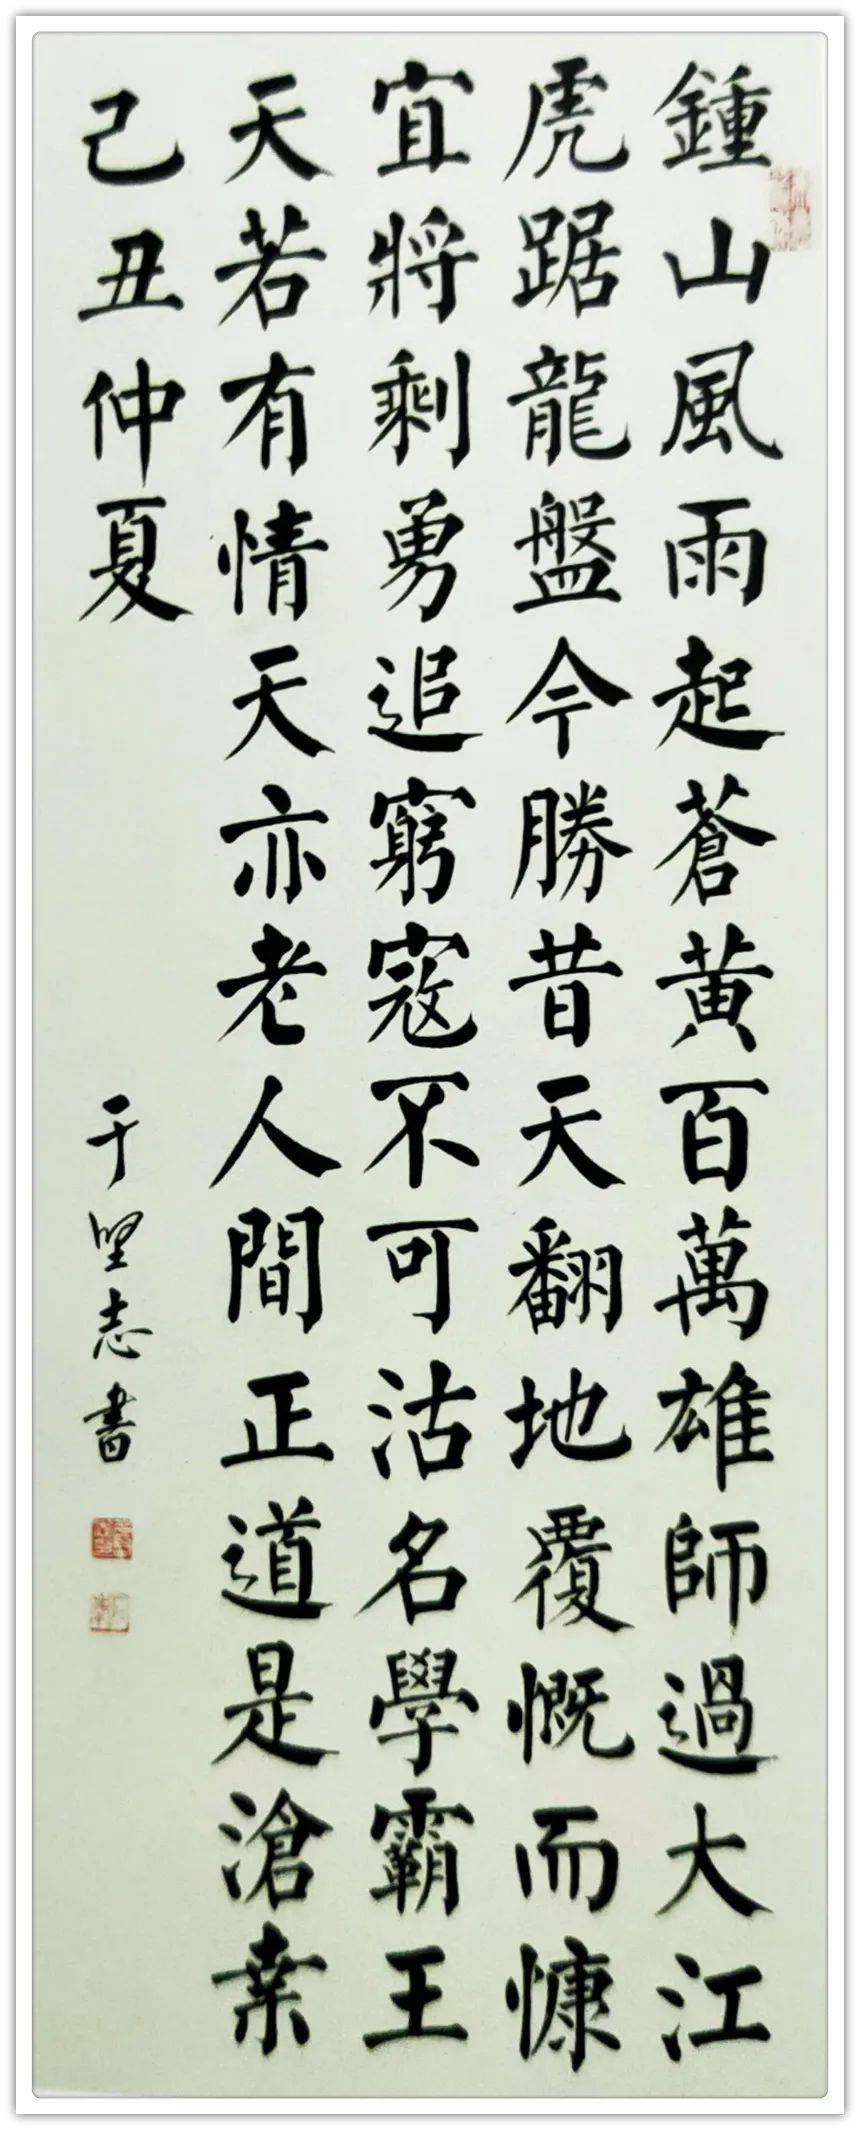 鍾山風雨起蒼黃百萬雄師過大江
虎踞龍盤今勝昔天翻地覆慨而慷
宜將剩勇追窮寇不可沽名學霸王
天若有情天亦老人間正道是滄桒
己丑仲夏
于坚志書